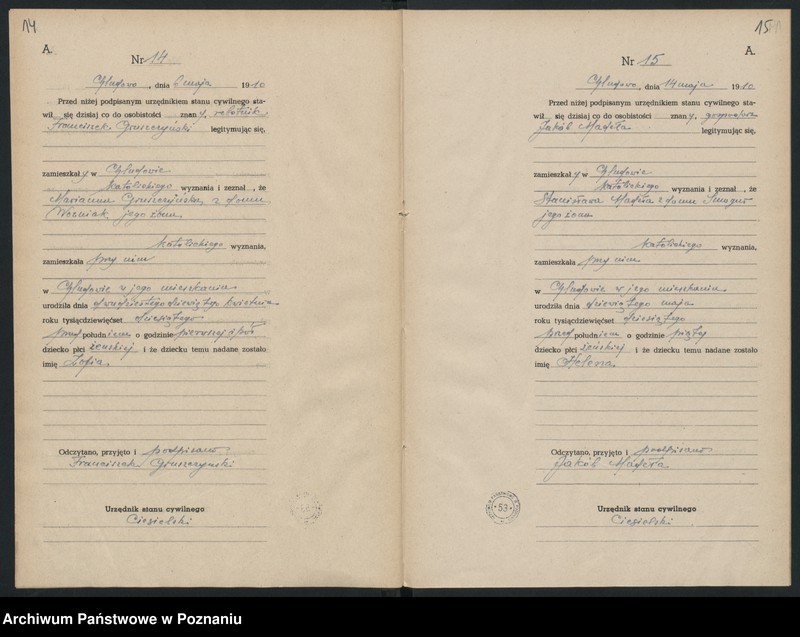 14
A.
Nr 14
, dnia 6 maja 1910
Przed niżej podpisanym urzędnikiem stanu cywilnego sta-
wił się dzisiaj co do osobistości znany, robotnik
Franciszek Gruszczyński legitymując się,
zamieszkały w
katolickiego wyznania i zeznał, że
Marianna Gruszczyńska, z domu
Woźniak jego żona
katolickiego wyznania,
zamieszkała przy nim
w w jego mieszkaniu
urodziła dnia dwudziestego dziewiątego kwietnia
roku tysiącdziewięćset dziesiątego
przed południem o godzinie pierwszej i pół
dziecko płci żeńskiej i że dziecku temu nadane zostało
imię Zofia
Odczytano, przyjęto i podpisano
Franciszek Gruszczyński
Urzędnik stanu cywilnego
Ciesielski
15
A.
Nr 15
, dnia 14 maja 1910
Przed niżej podpisanym urzędnikiem stanu cywilnego sta-
wił się dzisiaj co do osobistości znany,
Jakób legitymując się,
zamieszkały w
katolickiego wyznania i zeznał, że
Stanisława z domu
jego żona
katolickiego wyznania,
zamieszkała przy nim
w w jego mieszkaniu
urodziła dnia dziewiątego maja
roku tysiącdziewięćset dziesiątego
przed południem o godzinie piątej
dziecko płci żeńskiej i że dziecku temu nadane zostało
imię Helena
Odczytano, przyjęto i podpisano
Jakób
53
Urzędnik stanu cywilnego
Ciesielski
Archiwum Państwowe w Poznaniu